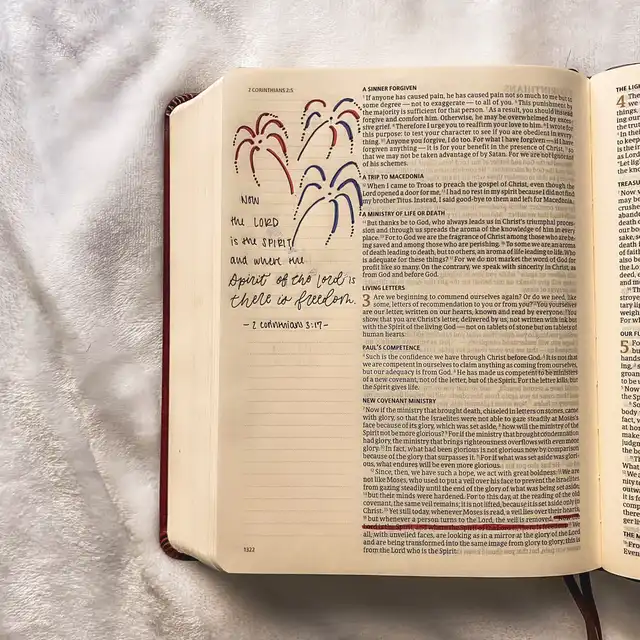 2 CORINTHIANS 2:5
NOW
the LORD
is the SPIRIT
and where the
Spirit of the Lord is
there is freedom.
- 2 corinthians 3:17 -
1322
A SINNER FORGIVEN
5 If anyone has caused pain, he has caused pain not so much to me but to
some degree — not to exaggerate — to all of you. 6 This punishment by
the majority is sufficient for that person. 7 As a result, you should instead
forgive and comfort him. Otherwise, he may be overwhelmed by exces-
sive grief. 8 Therefore I urge you to reaffirm your love to him. 9 I wrote for
this purpose: to test your character to see if you are obedient in every-
thing. 10 Anyone you forgive, I do too. For what I have forgiven — if I have
forgiven anything — it is for your benefit in the presence of Christ, 11 so
that we may not be taken advantage of by Satan. For we are not ignorant
of his schemes.
A TRIP TO MACEDONIA
12 When I came to Troas to preach the gospel of Christ, even though the
Lord opened a door for me, 13 I had no rest in my spirit because I did not find
my brother Titus. Instead, I said good-bye to them and left for Macedonia.
A MINISTRY OF LIFE OR DEATH
14 But thanks be to God, who always leads us in Christ's triumphal proces-
sion and through us spreads the aroma of the knowledge of him in every
place. 15 For to God we are the fragrance of Christ among those who are be-
ing saved and among those who are perishing. 16 To some we are an aroma
of death leading to death, but to others, an aroma of life leading to life. Who
is adequate for these things? 17 For we do not market the word of God for
profit like so many. On the contrary, we speak with sincerity in Christ, as
from God and before God.
LIVING LETTERS
3 Are we beginning to commend ourselves again? Or do we need, like
some, letters of recommendation to you or from you? 2 You yourselves
are our letter, written on our hearts, known and read by everyone. 3 You
show that you are Christ's letter, delivered by us, not written with ink but
with the Spirit of the living God — not on tablets of stone but on tablets of
human hearts.
PAUL'S COMPETENCE
4 Such is the confidence we have through Christ before God. 5 It is not that
we are competent in ourselves to claim anything as coming from ourselves,
but our adequacy is from God. 6 He has made us competent to be ministers
of a new covenant, not of the letter, but of the Spirit. For the letter kills, but
the Spirit gives life.
NEW COVENANT MINISTRY
7 Now if the ministry that brought death, chiseled in letters on stones, came
with glory, so that the Israelites were not able to gaze steadily at Moses's
face because of its glory, which was set aside, 8 how will the ministry of the
Spirit not be more glorious? 9 For if the ministry that brought condemnation
had glory, the ministry that brings righteousness overflows with even more
glory. 10 In fact, what had been glorious is not glorious now by comparison
because of the glory that surpasses it. 11 For if what was set aside was glori-
ous, what endures will be even more glorious.
12 Since, then, we have such a hope, we act with great boldness. 13 We are
not like Moses, who used to put a veil over his face to prevent the Israelites
from gazing steadily until the end of the glory of what was being set aside,
14 but their minds were hardened. For to this day, at the reading of the old
covenant, the same veil remains; it is not lifted, because it is set aside only in
Christ. 15 Yet still today, whenever Moses is read, a veil lies over their hearts,
16 but whenever a person turns to the Lord, the veil is removed. 17 Now the
Lord is the Spirit, and where the Spirit of the Lord is, there is freedom. 18 We
all, with unveiled faces, are looking as in a mirror at the glory of the Lord
and are being transformed into the same image from glory to glory; this is
from the Lord who is the Spirit.
THE LIGH
4
TREASU
OUR FU
5